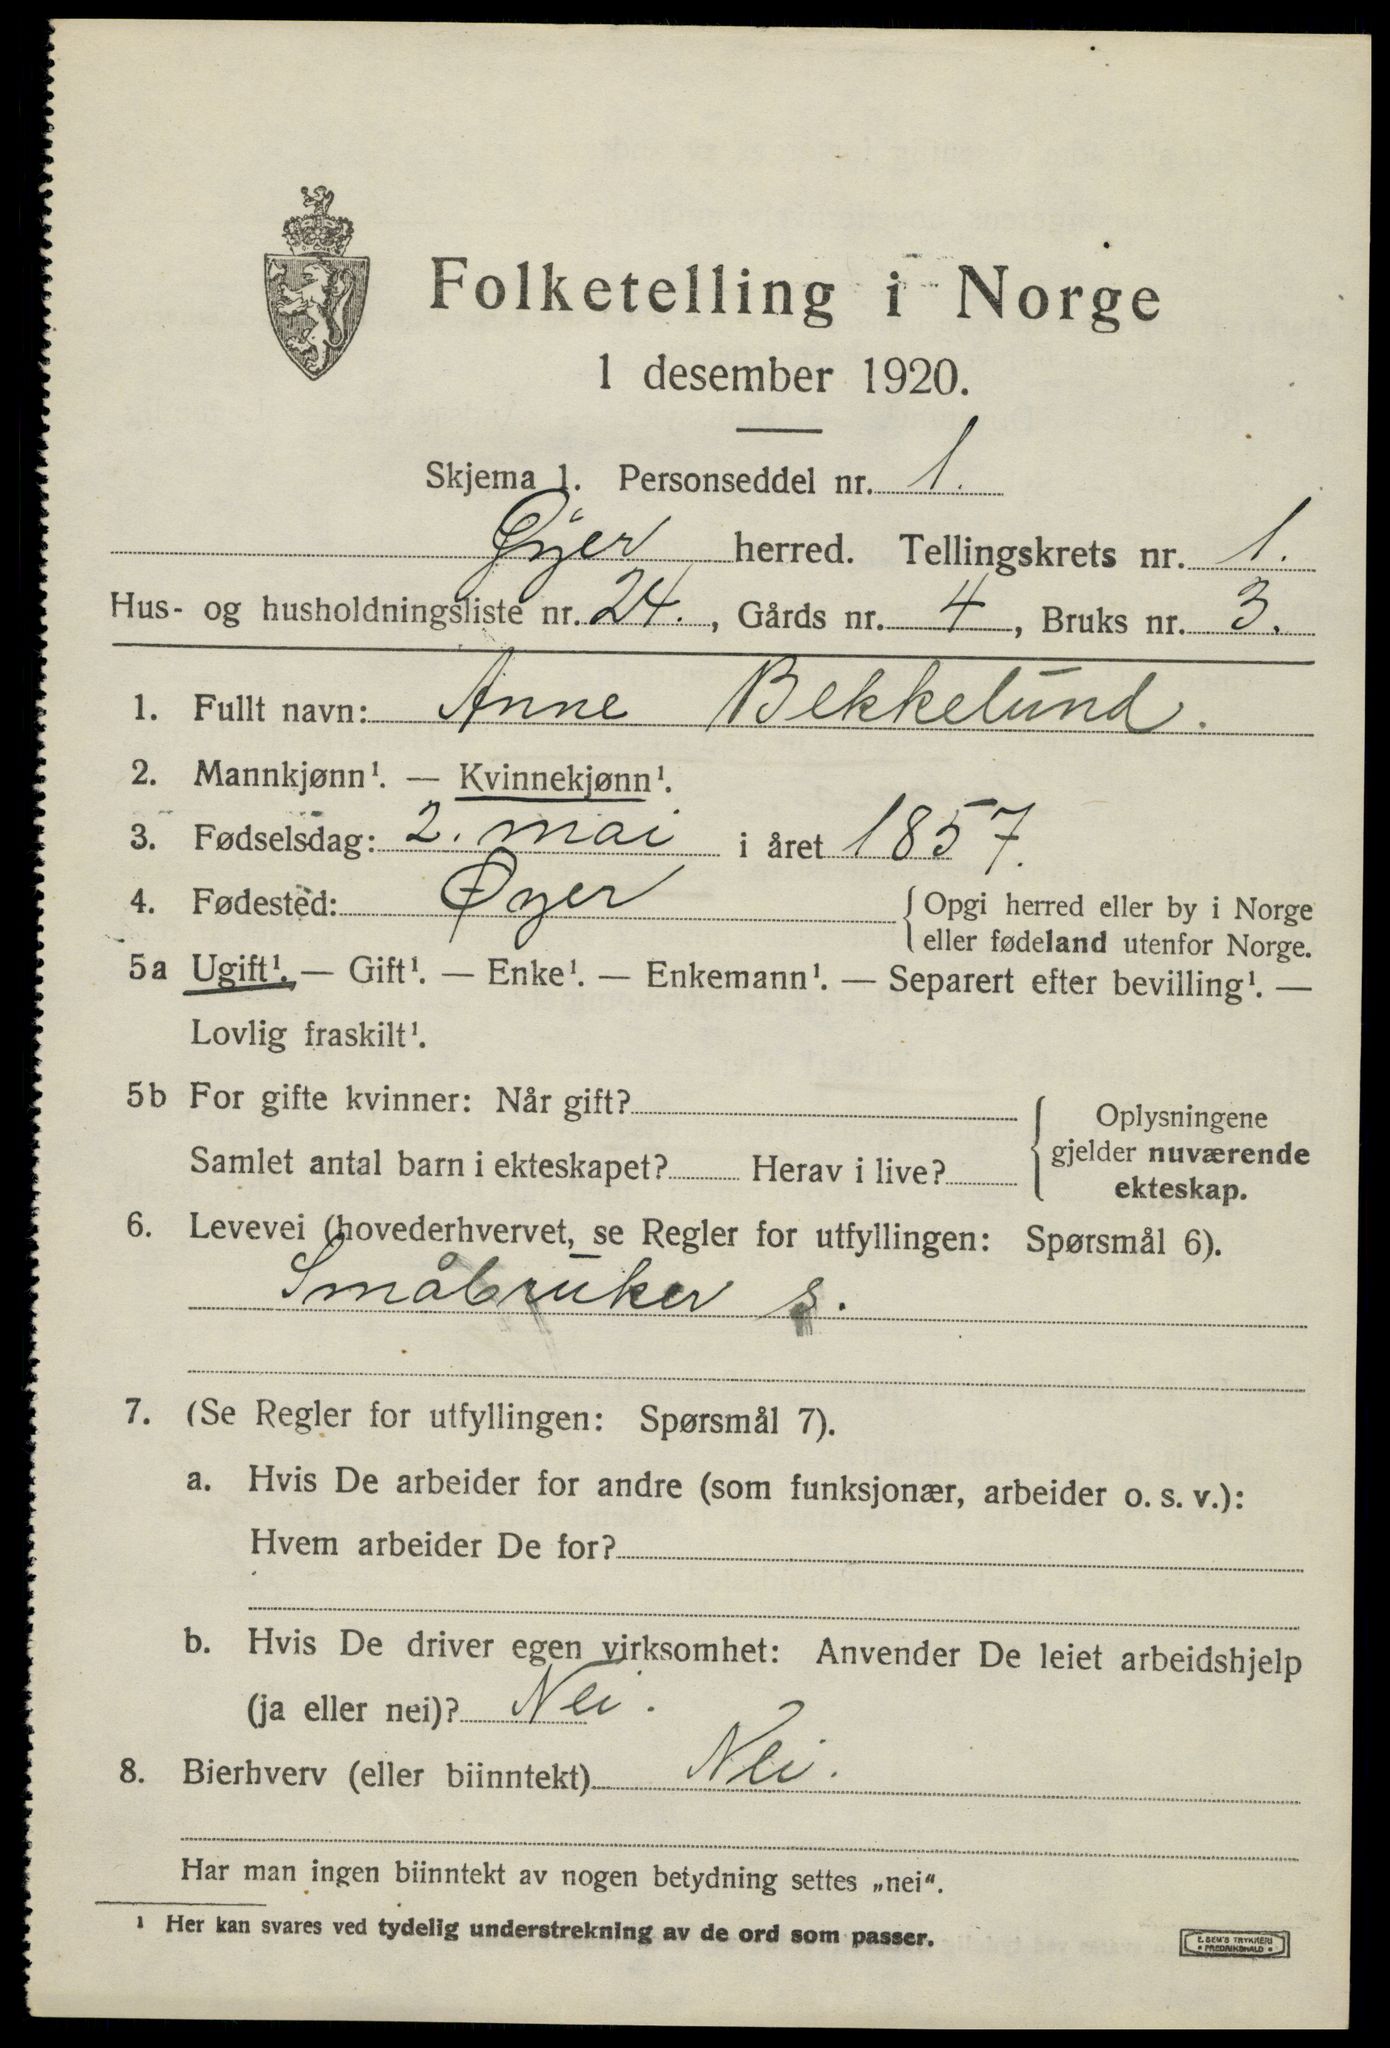 Folketelling i Norge
1 desember 1920.
Skjema 1. Personseddel nr. 1.
Øyer herred. Tellingskrets nr. 1.
Hus- og husholdningsliste nr. 24., Gårds nr. 4, Bruks nr. 3.
1. Fullt navn: Anne Bekkelund.
2. Mannkjønn¹. — Kvinnekjønn¹.
3. Fødselsdag: 2. mai i året 1857.
4. Fødested: Øyer { Opgi herred eller by i Norge
eller fødeland utenfor Norge.
5a Ugift¹. — Gift¹. — Enke¹. — Enkemann¹. — Separert efter bevilling¹. —
Lovlig fraskilt¹.
5b For gifte kvinner: Når gift?
Samlet antal barn i ekteskapet? Herav i live?
{ Oplysningene
gjelder nuværende
ekteskap.
6. Levevei (hovederhvervet, se Regler for utfyllingen: Spørsmål 6).
Småbruker s.
7. (Se Regler for utfyllingen: Spørsmål 7).
a. Hvis De arbeider for andre (som funksjonær, arbeider o. s. v.):
Hvem arbeider De for?
b. Hvis De driver egen virksomhet: Anvender De leiet arbeidshjelp
(ja eller nei)? Nei.
8. Bierhverv (eller biinntekt) Nei.
Har man ingen biinntekt av nogen betydning settes „nei“.
¹ Her kan svares ved tydelig understrekning av de ord som passer.
E. SEM'S TRYKKERI
• FREDRIKSHALD •